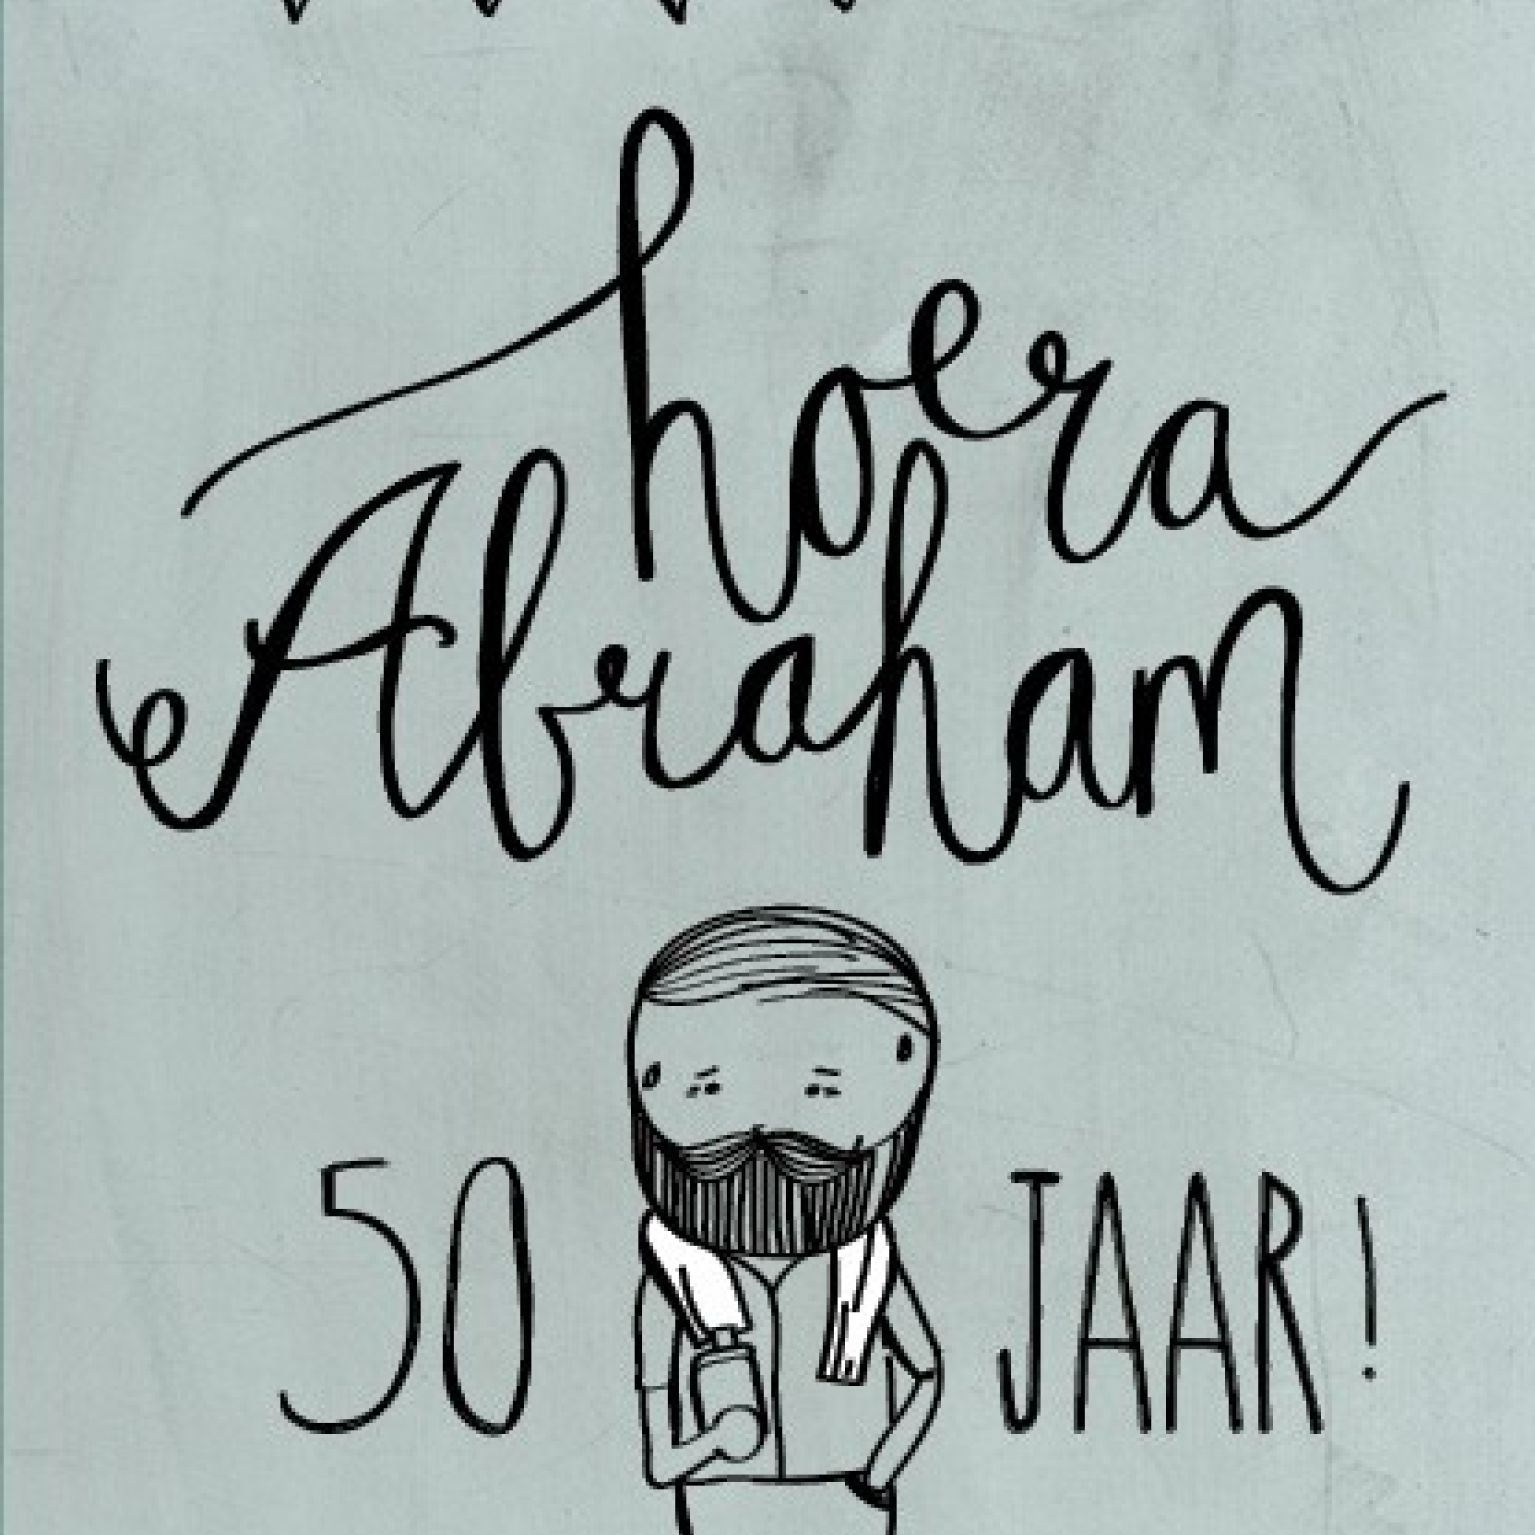 hoera
Abraham
50 JAAR!